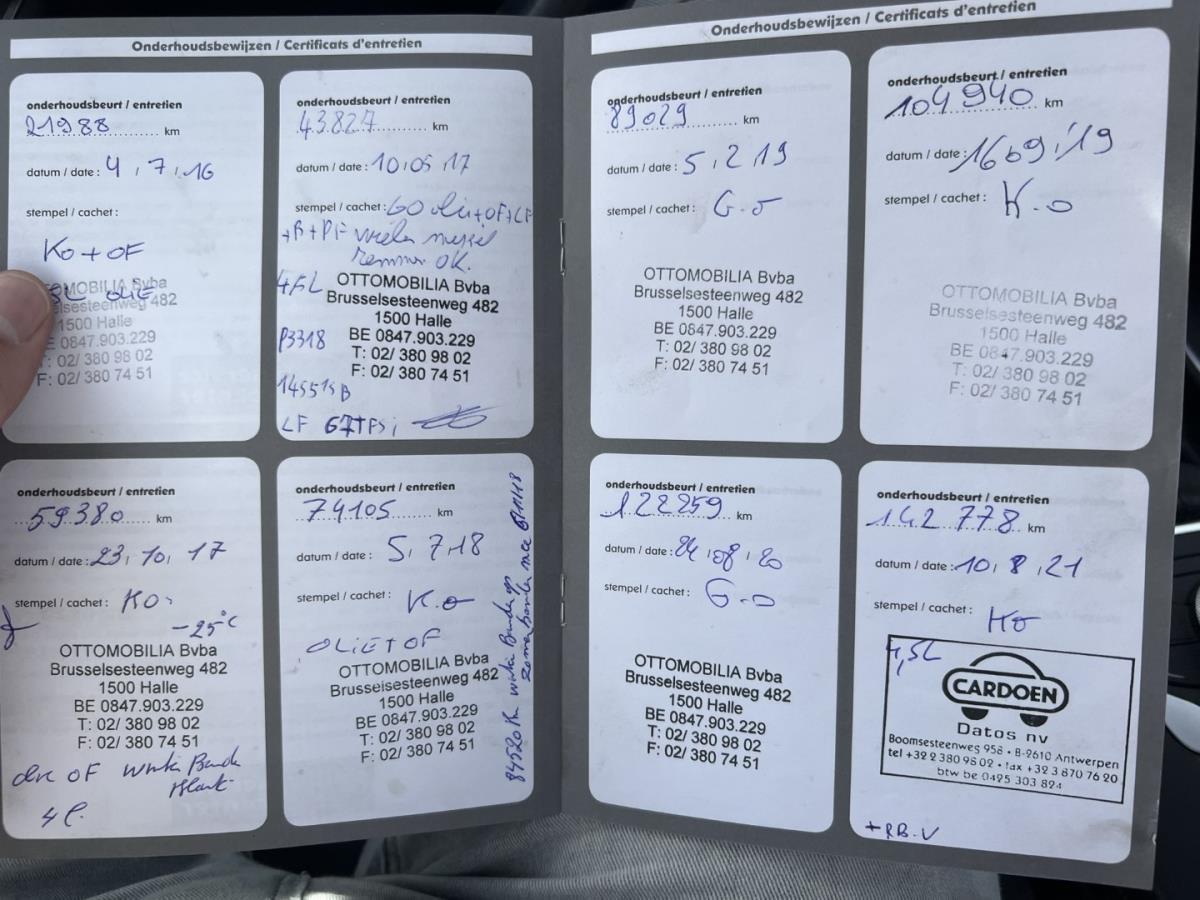 Onderhoudsbewijzen / Certificats d'entretien
onderhoudsbeurt / entretien
21988 km
datum / date : 4, 7, 16
stempel / cachet :
KO + OF
5L OLIE
OTTOMOBILIA Bvba
Brusselsesteenweg 482
1500 Halle
BE 0847.903.229
T: 02/ 380 98 02
F: 02/ 380 74 51
onderhoudsbeurt / entretien
43.827 km
datum / date : 10, 05, 17
stempel / cachet : GO olie + OF + LF
+ B + PF
remmen OK.
OTTOMOBILIA Bvba
Brusselsesteenweg 482
1500 Halle
BE 0847.903.229
T: 02/ 380 98 02
F: 02/ 380 74 51
P3318
LF
onderhoudsbeurt / entretien
59380 km
datum / date : 23, 10, 17
stempel / cachet : KO
-25°C
OTTOMOBILIA Bvba
Brusselsesteenweg 482
1500 Halle
BE 0847.903.229
T: 02/ 380 98 02
F: 02/ 380 74 51
OF winter Banden
4 l.
onderhoudsbeurt / entretien
74105 km
datum / date : 5, 7, 18
stempel / cachet : K.O
OLIE + OF
OTTOMOBILIA Bvba
Brusselsesteenweg 482
1500 Halle
BE 0847.903.229
T: 02/ 380 98 02
F: 02/ 380 74 51
84520 km winter Banden op
zomerbanden mee
Onderhoudsbewijzen / Certificats d'entretien
onderhoudsbeurt / entretien
89029 km
datum / date : 5, 2, 19
stempel / cachet : G.O
OTTOMOBILIA Bvba
Brusselsesteenweg 482
1500 Halle
BE 0847.903.229
T: 02/ 380 98 02
F: 02/ 380 74 51
onderhoudsbeurt / entretien
104 940 km
datum / date : 16 09, 19
stempel / cachet : K.O
OTTOMOBILIA Bvba
Brusselsesteenweg 482
1500 Halle
BE 0847.903.229
T: 02/ 380 98 02
F: 02/ 380 74 51
onderhoudsbeurt / entretien
122259 km
datum / date : 24, 08, 20
stempel / cachet : G.O
OTTOMOBILIA Bvba
Brusselsesteenweg 482
1500 Halle
BE 0847.903.229
T: 02/ 380 98 02
F: 02/ 380 74 51
onderhoudsbeurt / entretien
142 778 km
datum / date : 10, 8, 21
stempel / cachet :
KO
4,5L
CARDOEN
Datos nv
Boomsesteenweg 958 • B-2610 Antwerpen
tel +32 2 380 98 02 • fax +32 3 870 76 20
btw be 0425 303 824
+ RB.V